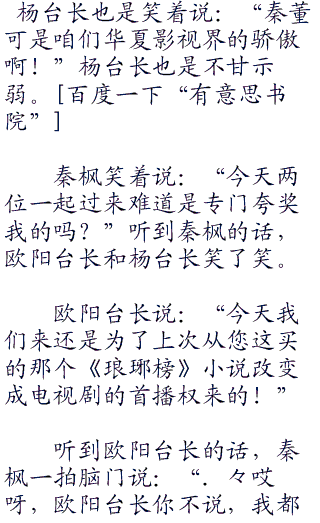 杨台长也是笑着说：“秦董
可是咱们华夏影视界的骄傲
啊！”杨台长也是不甘示
弱。[百度一下“有意思书
院”]
秦枫笑着说：“今天两
位一起过来难道是专门夸奖
我的吗？”听到秦枫的话，
欧阳台长和杨台长笑了笑。
欧阳台长说：“今天我
们来还是为了上次从您这买
的那个《琅琊榜》小说改变
成电视剧的首播权来的！”
听到欧阳台长的话，秦
枫一拍脑门说：“．々哎
呀，欧阳台长你不说，我都